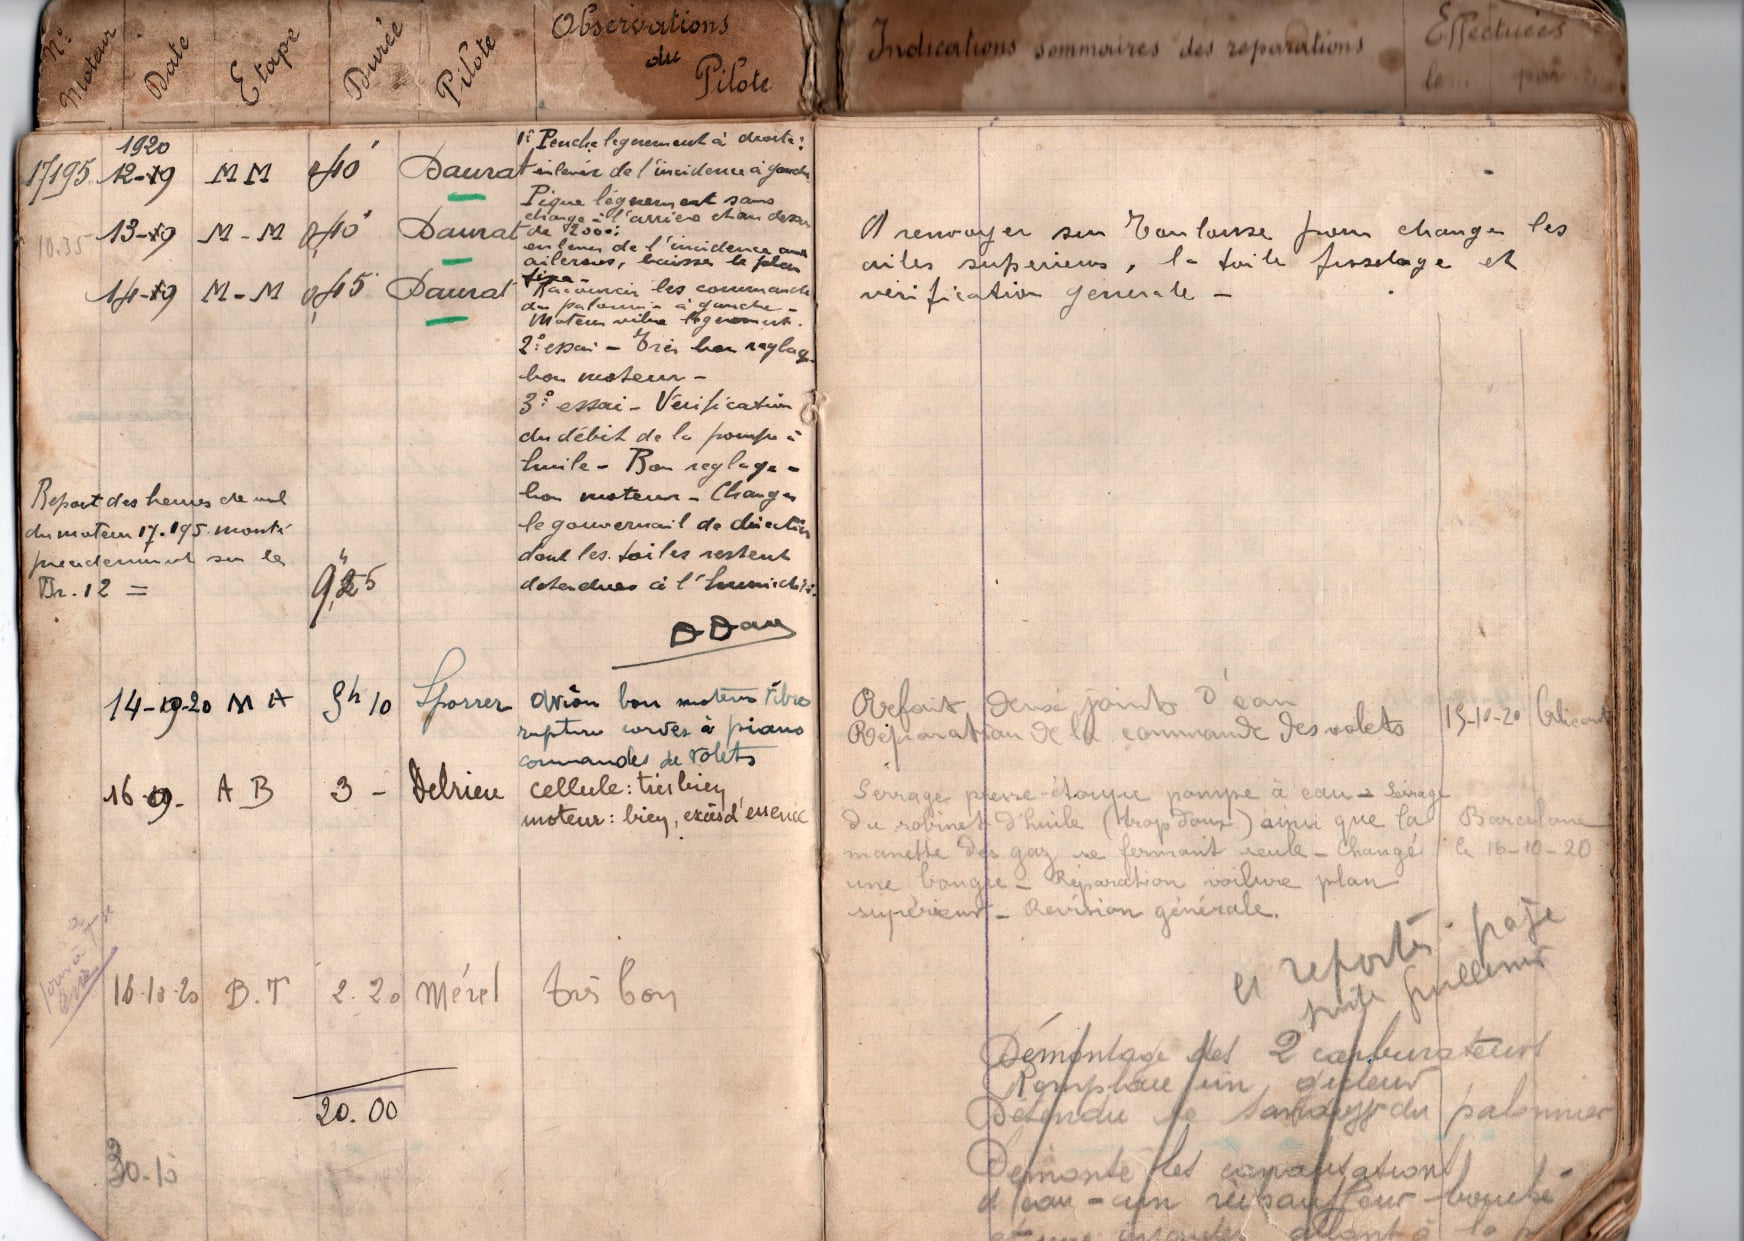 N° Moteur
Date
Etape
Durée
Pilote
Observations
du
Pilote
1920
17195 12-19 M M 0h40 Daurat
1° Penche legerement à droite:
enlever de l'incidence à gauche
Pique légèrement sans
charge à l'arriere et au dessus
de 2000:
13-19 M-M 0h40 Daurat
10.35
enlever de l'incidence aux
ailerons, baisser le plan
fixe -
14-19 M-M 0h45 Daurat
Racourcir les commandes
du palonnier à gauche -
Moteur vibre légèrement.
2° essai - Très bon reglage
bon moteur -
3° essai - Vérification
du débit de la pompe à
huile - Bon reglage -
bon moteur - Changer
le gouvernail de direction
dont les toiles restent
detendues à l'humidité.
Report des heures de vol
du moteur 17.195 monté
precedemment sur le
Br. 12 = 9h25
14-19-20 M A 3h10 Sporrer
avion bon moteur vibre
rupture cordes à piano
commandes de volets
16-19- A B 3 - Delrieu
cellule: très bien,
moteur: bien, excès d'essence
16-10-20 B.T 2.20 Mérel très bon
20.00
30-10
Indications sommaires des reparations
Effectuées
le... par
A renvoyer sur Toulouse pour changer les
ailes superieures, la toile fuselage et
vérification generale -
Refait deux joints d'eau
Réparation de la commande des volets
15-10-20 Alicante
Serrage presse-étoupe pompe à eau - Serrage
du robinet d'huile (trop doux) ainsi que la
manette des gaz se fermant seule - Changé
une bougie - Réparation voilure plan
supérieur - Revision générale.
Barcelone
le 16-10-20
reporté page
Démontage des 2 carburateurs
Remplacé un gicleur
du palonnier
Demonté les canalisations
d'eau - un rechauffeur bouché